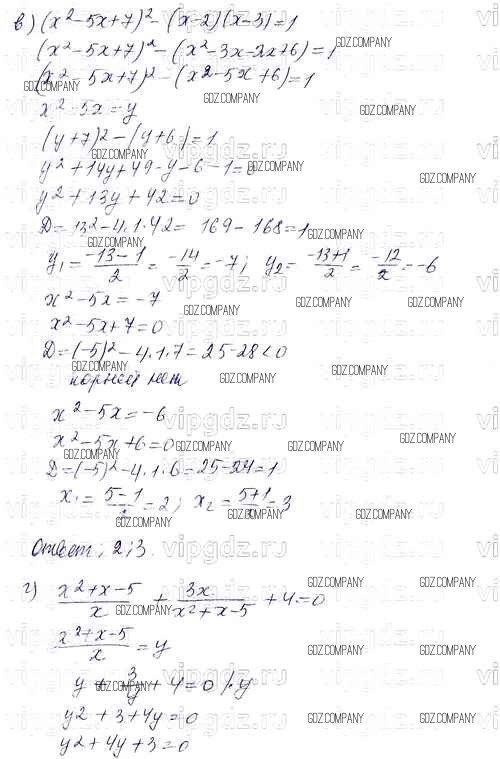 в) (x²-5x+7)² - (x-2)(x-3)=1
(x²-5x+7)² - (x²-3x-2x+6)=1
(x²-5x+7)² - (x²-5x+6)=1
x²-5x=y
(y+7)² - (y+6)=1
y²+14y+49-y-6-1=0
y²+13y+42=0
D=13²-4·1·42= 169-168=1
y₁= (-13-1)/2 = -14/2 =-7; y₂= (-13+1)/2 = -12/2 =-6
x²-5x=-7
x²-5x+7=0
D=(-5)²-4·1·7=25-28<0
корней нет
x²-5x=-6
x²-5x+6=0
D=(-5)²-4·1·6=25-24=1
x₁= (5-1)/2 =2; x₂= (5+1)/2 =3
Ответ: 2; 3.
г) (x²+x-5)/x + 3x/(x²+x-5) +4=0
(x²+x-5)/x =y
y + 3/y + 4=0 |·y
y²+3+4y=0
y²+4y+3=0
vipgdz.ru
GDZ.COMPANY